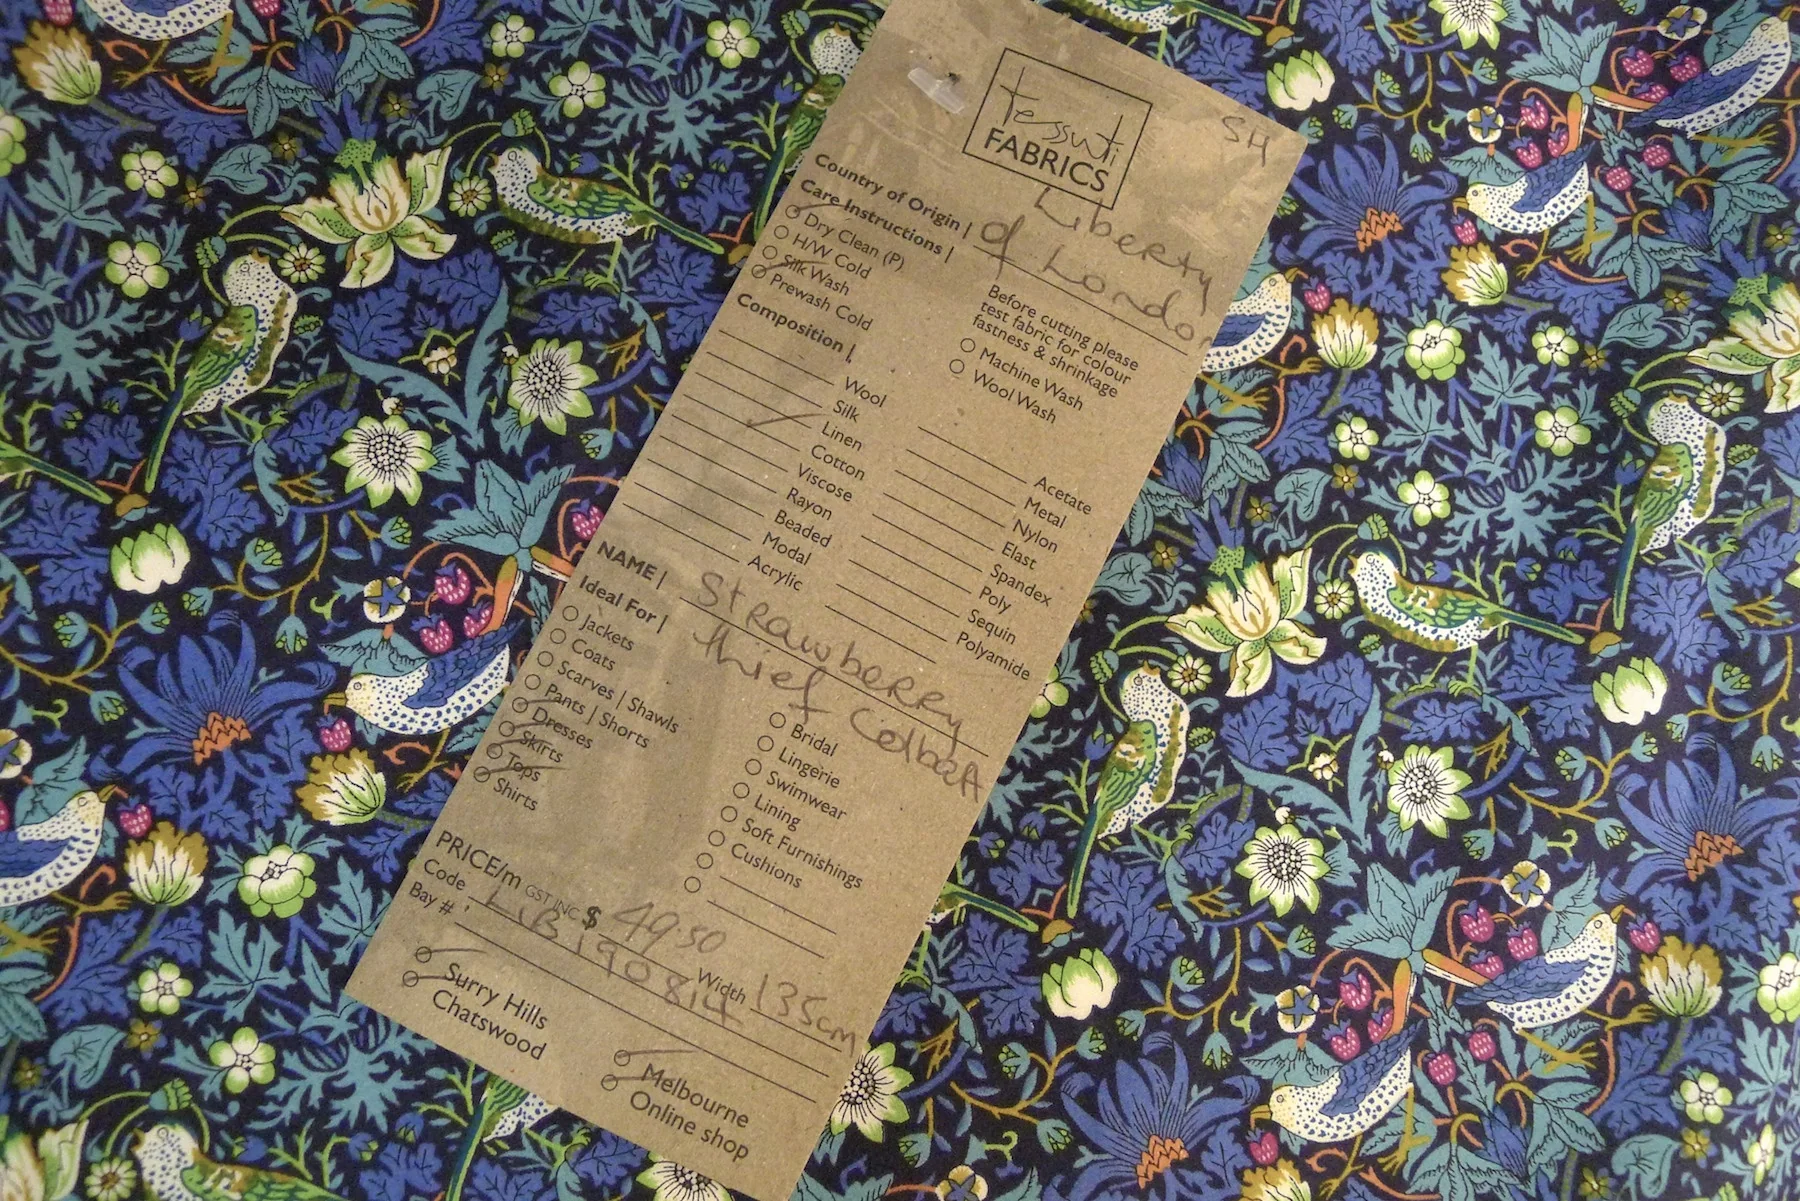 tessuti
FABRICS
SH
Country of Origin | Liberty
of London
Care Instructions |
Dry Clean (P)
H/W Cold
Silk Wash
Prewash Cold
Before cutting please
test fabric for colour
fastness & shrinkage
Machine Wash
Wool Wash
Composition |
Wool
Silk
Linen
Cotton
Viscose
Rayon
Beaded
Modal
Acrylic
Acetate
Metal
Nylon
Elast
Spandex
Poly
Sequin
Polyamide
NAME | Strawberry
thief
Ideal For |
Jackets
Coats
Scarves | Shawls
Pants | Shorts
Dresses
Skirts
Tops
Shirts
Bridal
Lingerie
Swimwear
Lining
Soft Furnishings
Cushions
PRICE/m GST INC $ 49.50 Width 135cm
Code LIB190814
Bay #
Surry Hills
Chatswood
Melbourne
Online shop